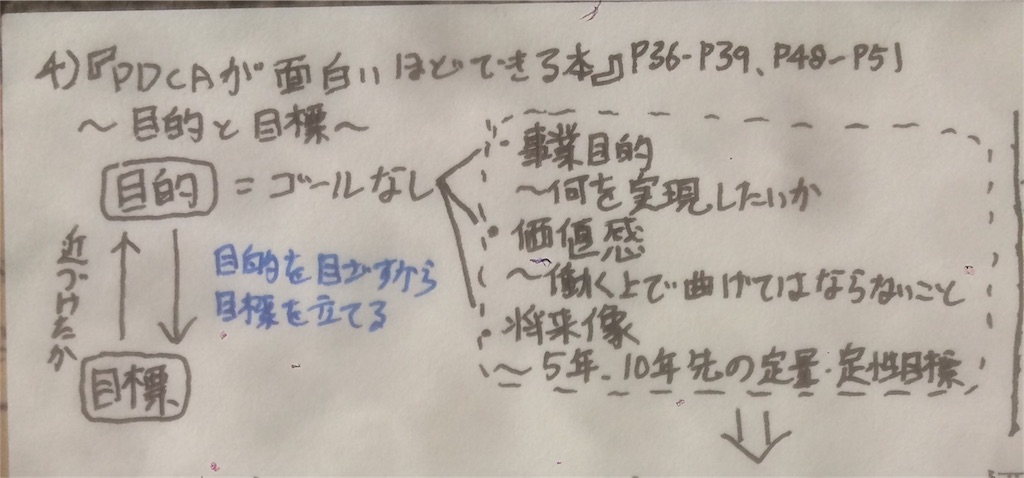 4)『PDCAが面白いほどできる本』P36-P39、P48-P51
～目的と目標～
目的 = ゴールなし
・事業目的
～何を実現したいか
・価値感
～働く上で曲げてはならないこと
・将来像
～5年、10年先の定量・定性目標
近づけたか
目的を目ざすから
目標を立てる
目標